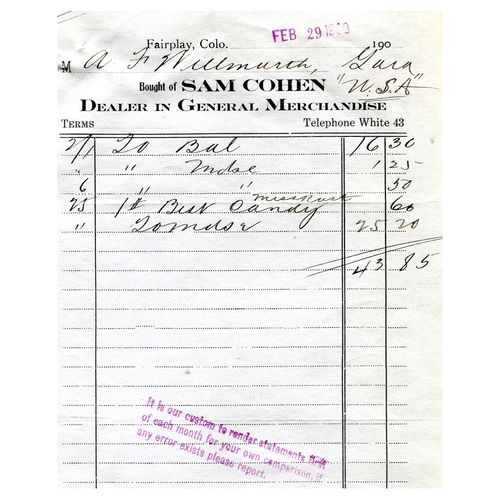 FEB 29 19
Fairplay, Colo. 190
M A F Willmarth, Gara
Bought of SAM COHEN "U.S.A"
DEALER IN GENERAL MERCHANDISE
TERMS Telephone White 43
2/1 To Bal 16 30
" " Mdse 1 25
6 " " 50
25 1# Best Candy 60
" To mdse 25 20
43 85
It is our custom to render statements first
of each month for your own comparison, if
any error exists please report.